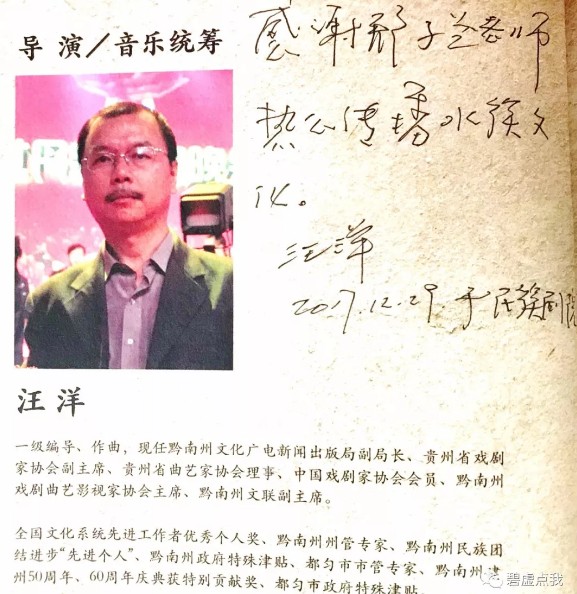 导 演／音乐统筹
感谢邢子益老师
热心传播水族文
化。
汪洋
2017.12.29.于民族剧院
汪 洋
一级编导、作曲，现任黔南州文化广电新闻出版局副局长、贵州省戏剧
家协会副主席、贵州省曲艺家协会理事、中国戏剧家协会会员、黔南州
戏剧曲艺影视家协会主席、黔南州文联副主席。
全国文化系统先进工作者优秀个人奖、黔南州州管专家、黔南州民族团
结进步“先进个人”、黔南州政府特殊津贴、都匀市市管专家、黔南州建
州50周年、60周年庆典获特别贡献奖、都匀市政府特殊津贴、
碧虚点我